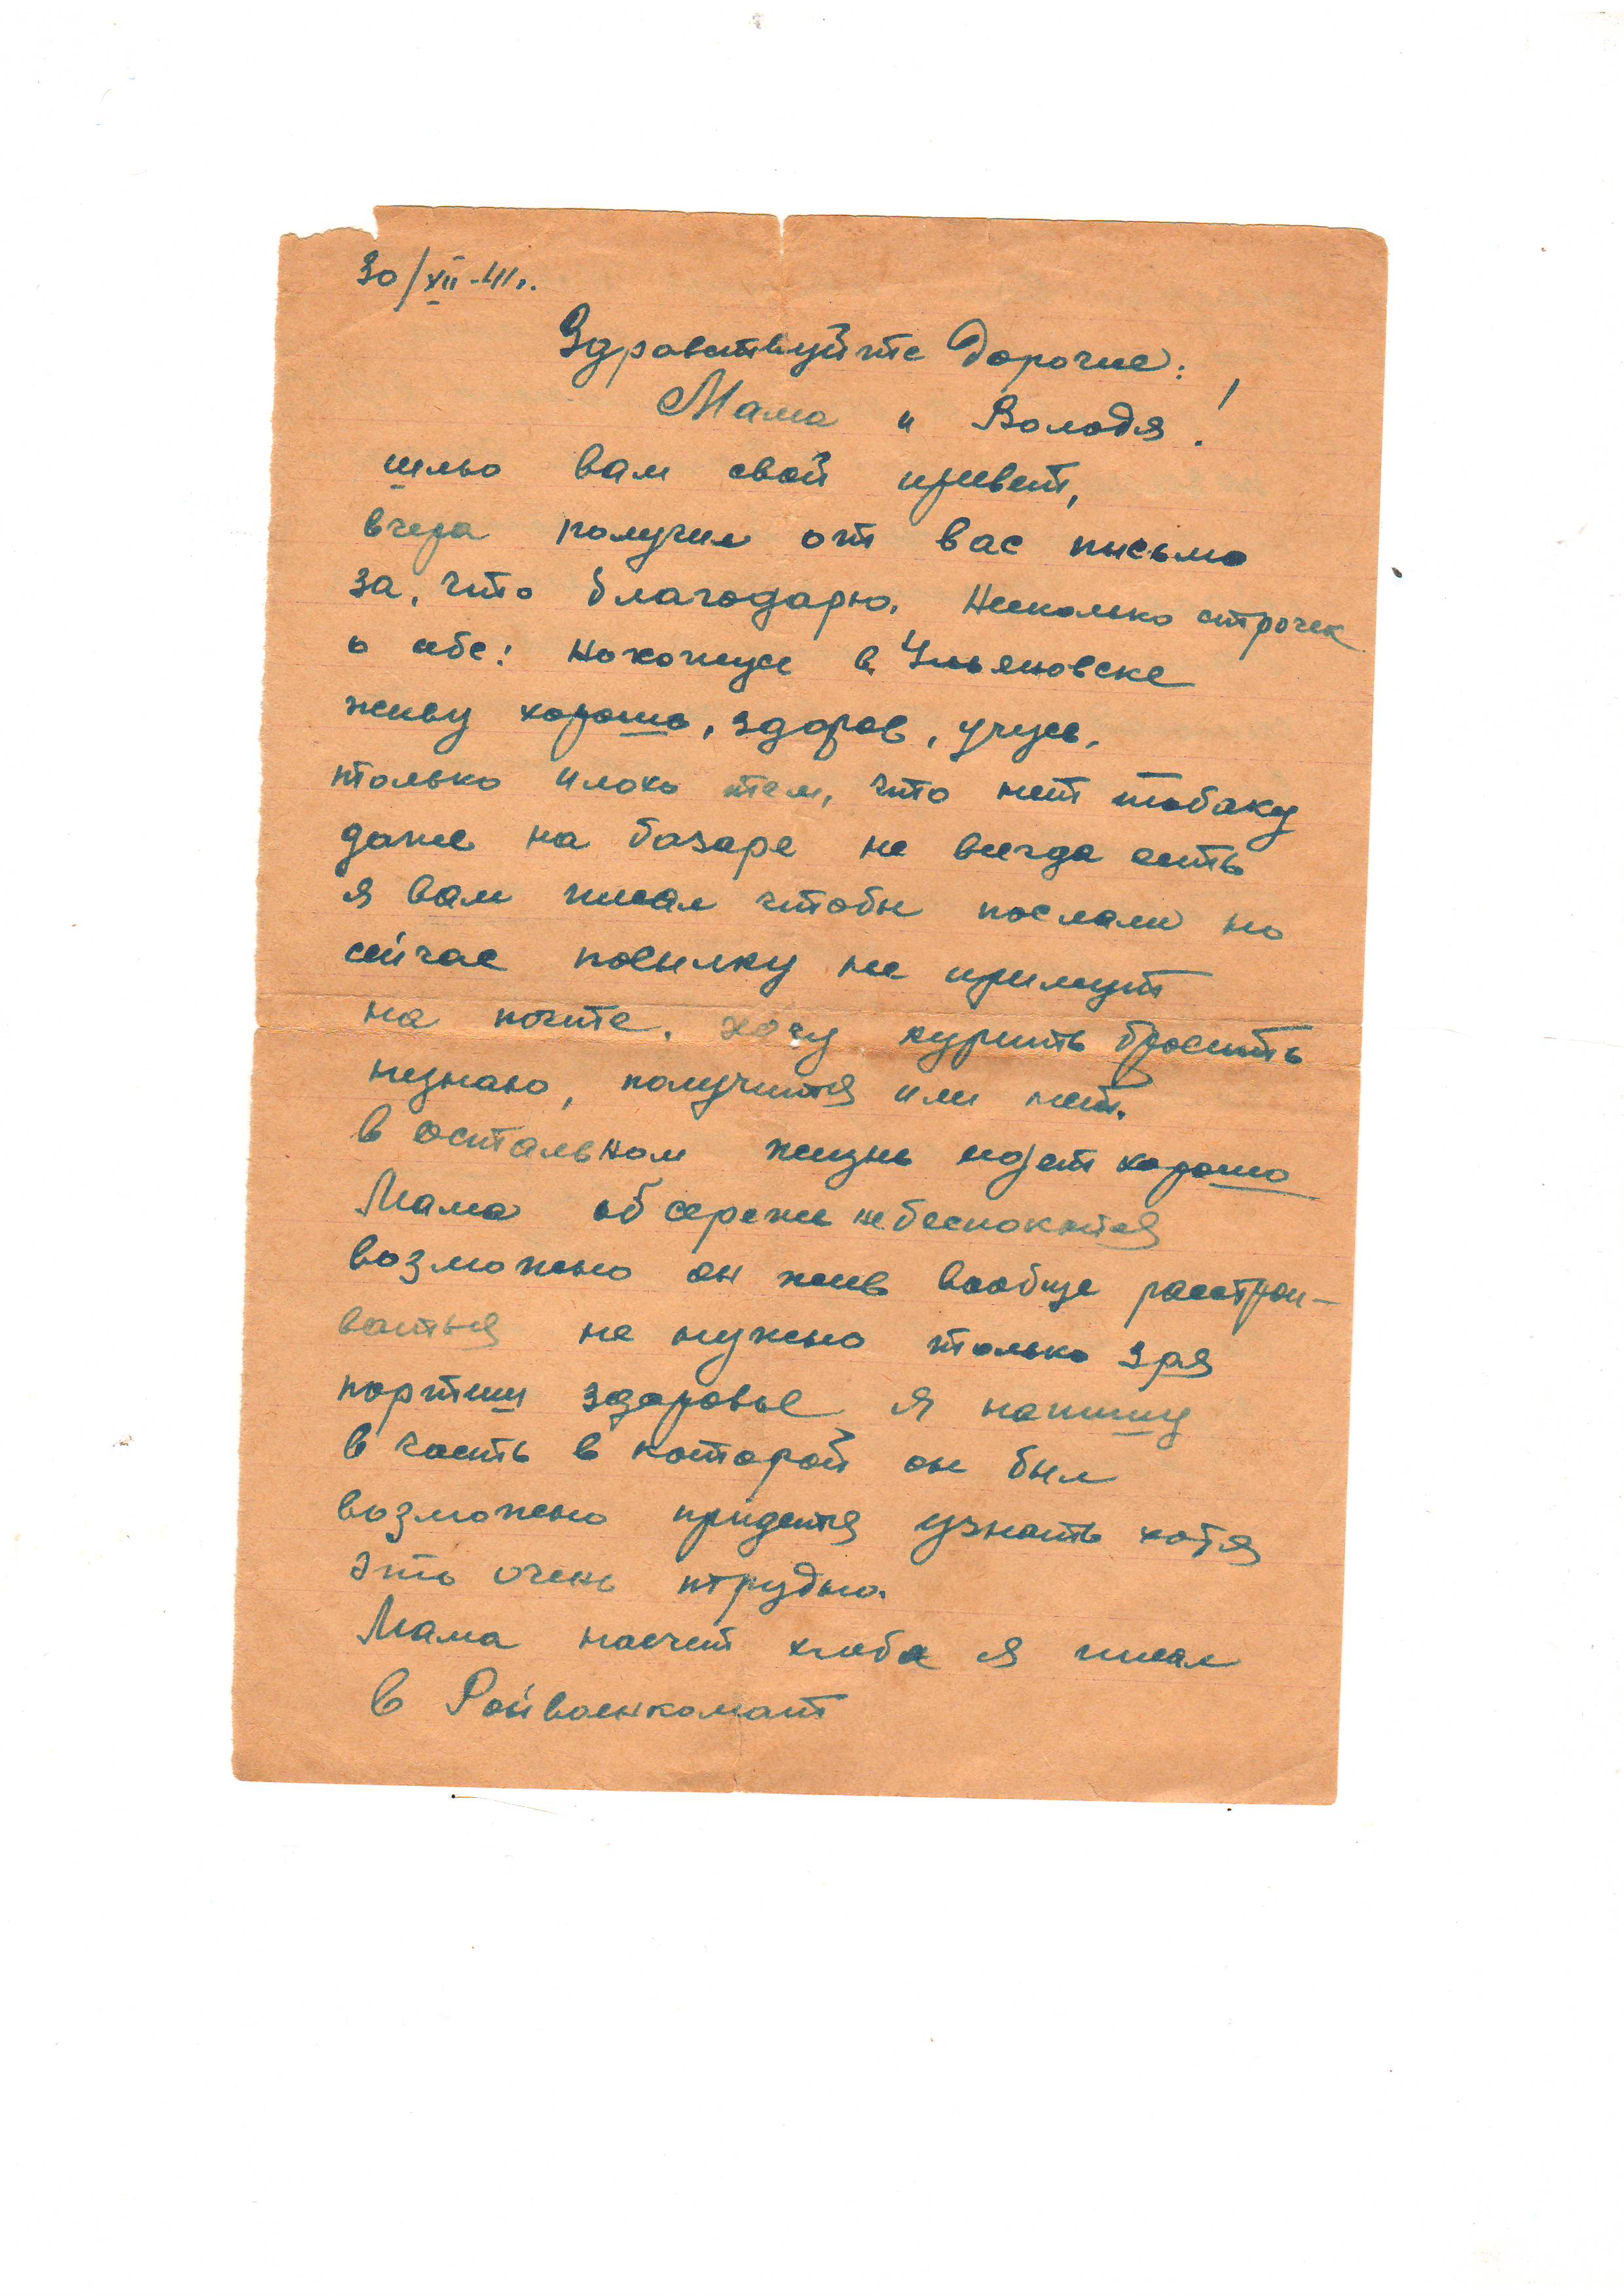 30/XII-41г.
Здравствуйте Дорогие:
Мама и Володя!
шлю вам свой привет,
вчера получил от вас письмо
за, что благодарю. Несколько строчек
о себе: нахожусь в Ульяновске
живу хорошо, здоров, учусь,
только плохо тем, что нет табаку
даже на базаре не всегда есть
я вам писал чтобы послали но
сейчас посылку не примут
на почте. хочу курить бросить
незнаю, получится или нет.
в остальном жизнь идет хорошо
Мама об сереже не беспокойтся
возможно он жив вообще расстраи-
ваться не нужно только зря
портиш здоровье я напишу
в часть в которой он был
возможно придется узнать хотя
это очень трудно.
Мама насчет хлеба я писал
в Райвоенкомат